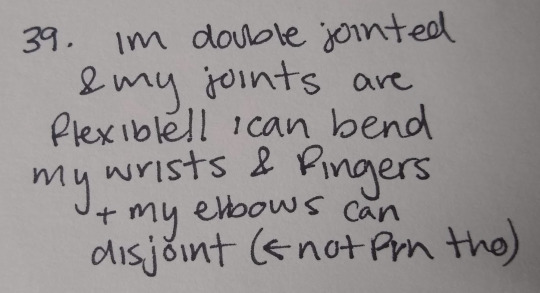 39. im double jointed
& my joints are
flexible!! i can bend
my wrists & fingers
+ my elbows can
disjoint (← not fun tho)